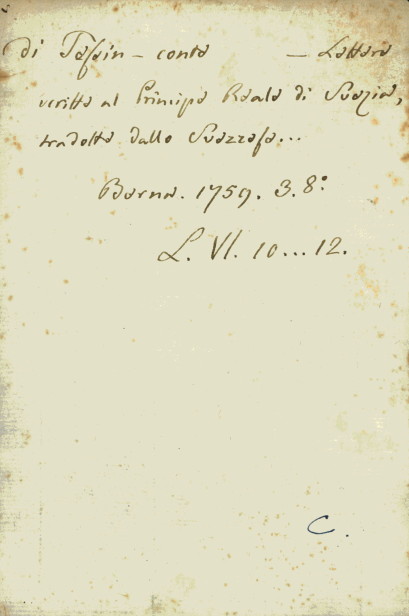 di Tessin – conte – Lettere
scritte al Principe Reale di Svezia,
tradotte dallo Svezzese...
Berna. 1759. 3. 8:°
L. VI. 10...12.
C.